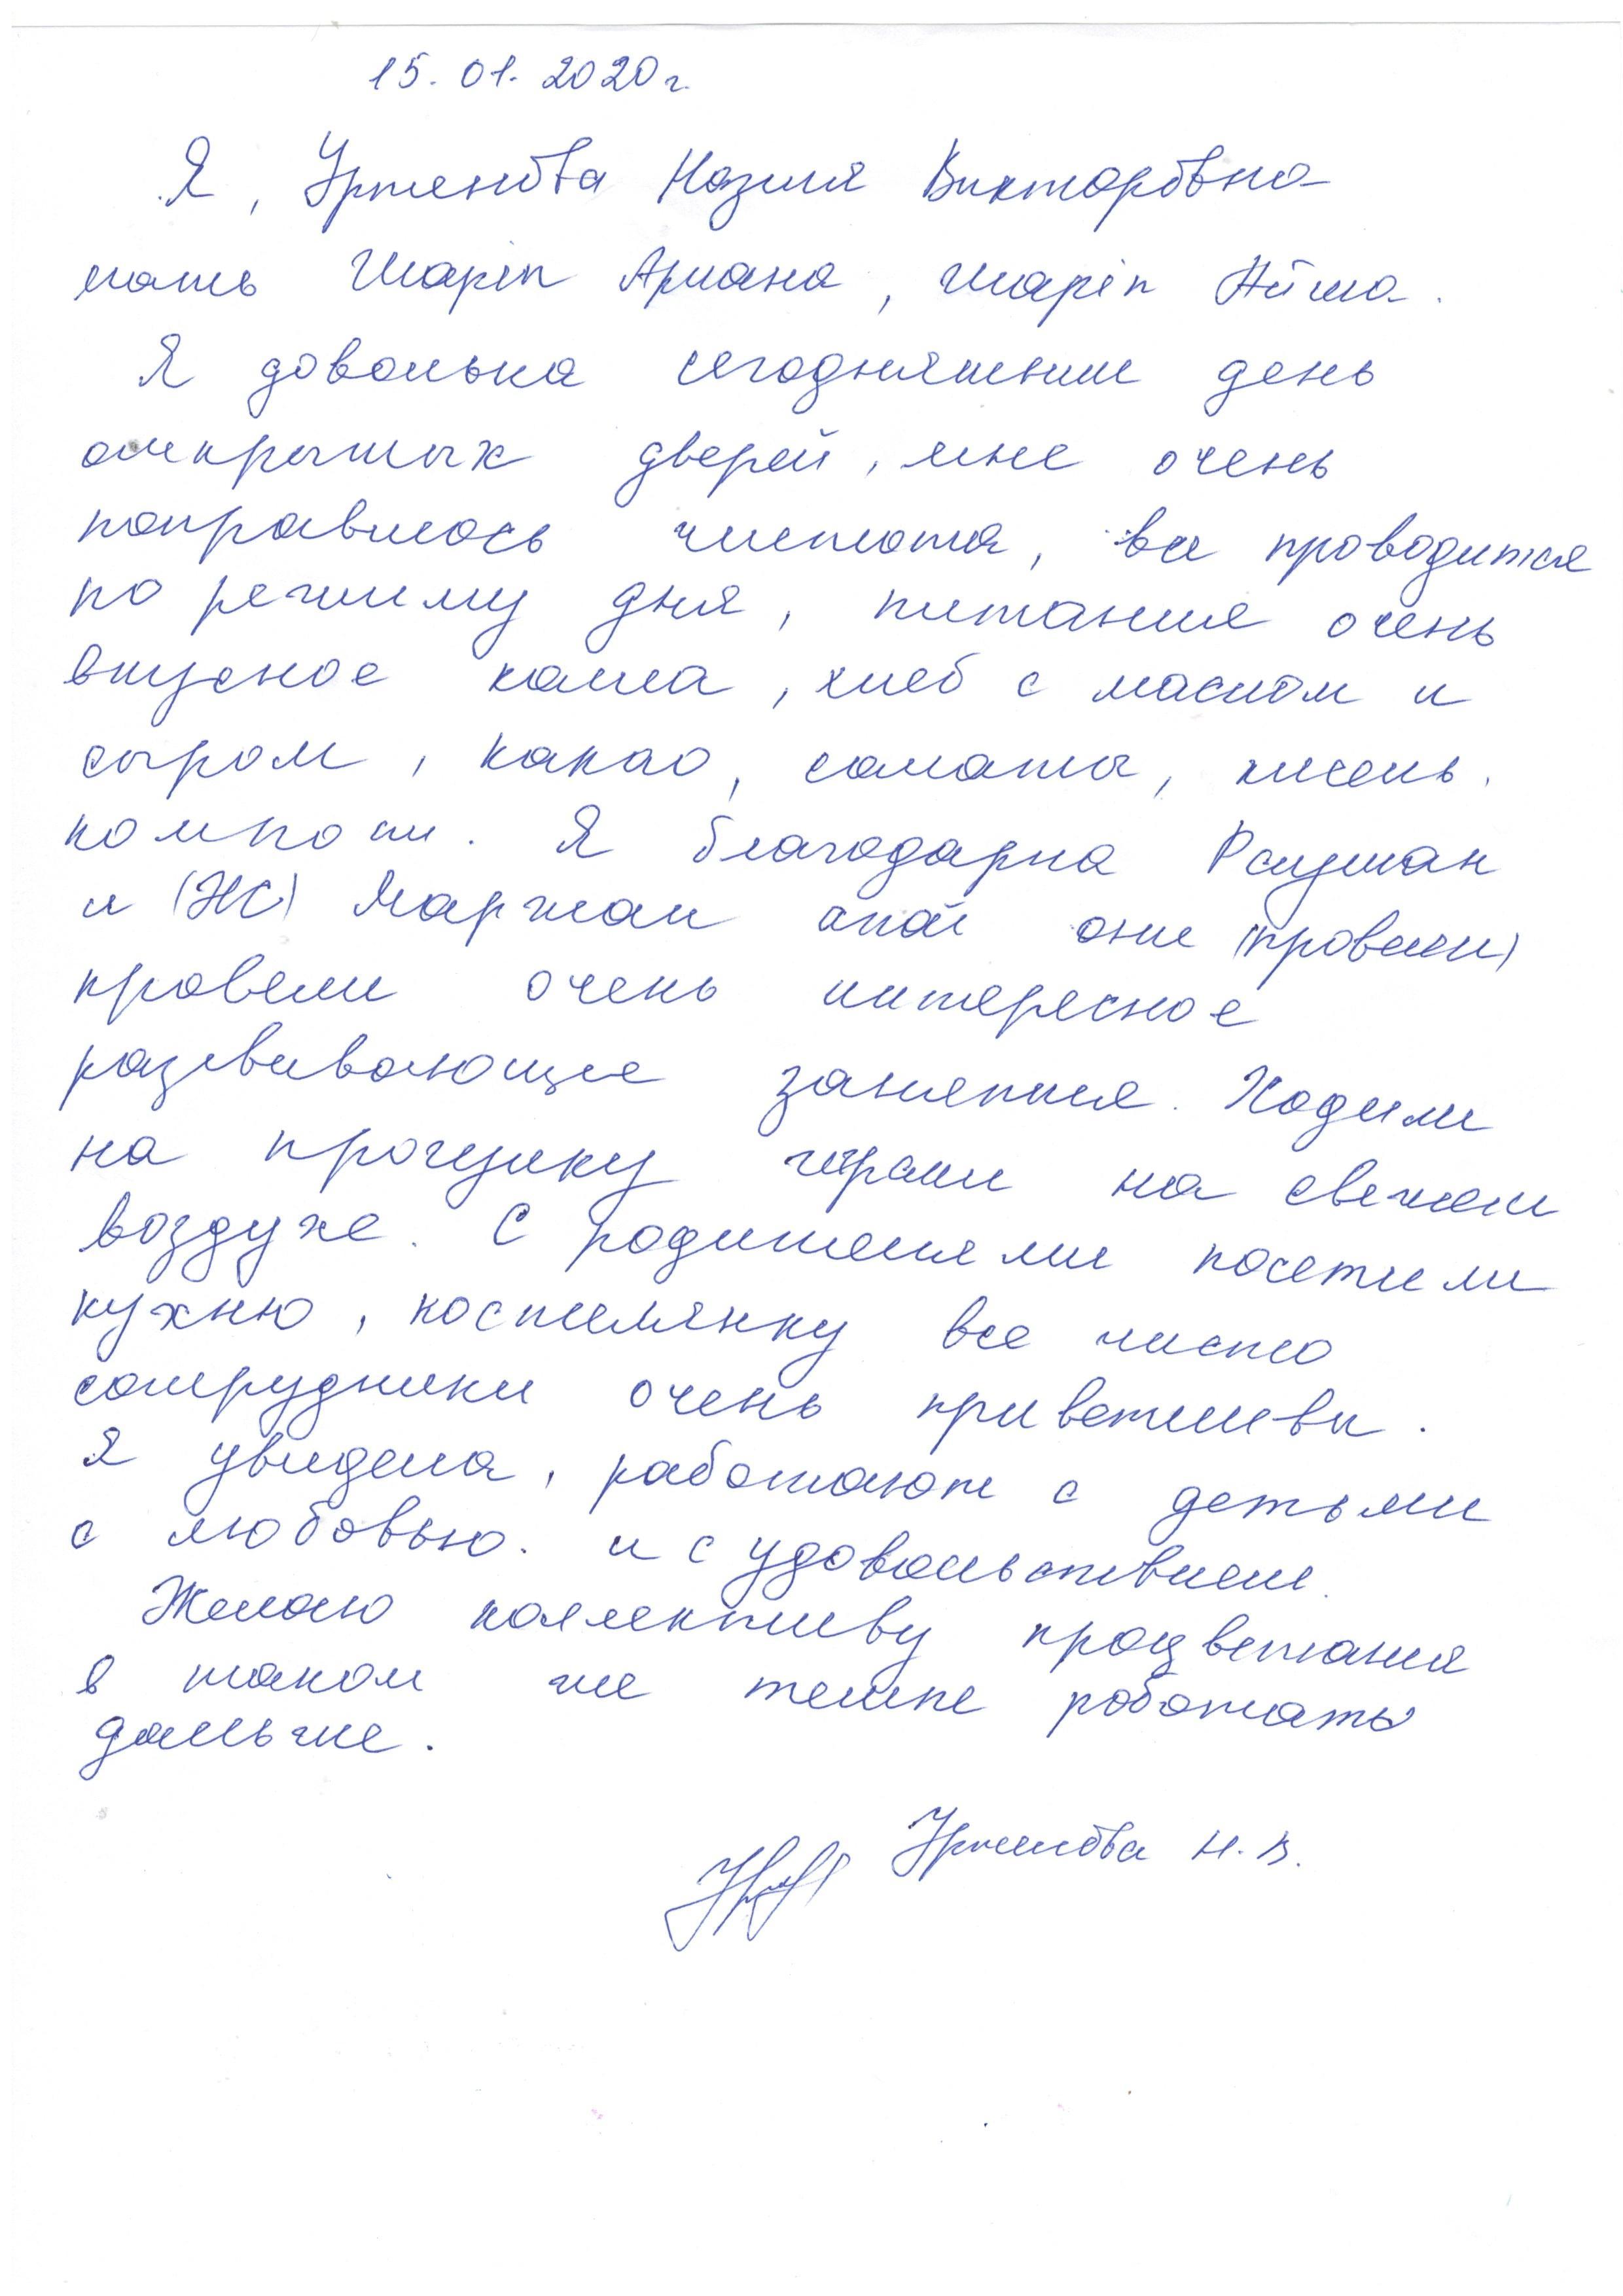 15.01.2020 г.
Я, Уртенова Назия Викторовна
мать Шаріп Армана, Шаріп Айша.
Я довольна сегодняшним день
открытых дверей, мне очень
понравилось чистота, все проводится
по режиму дня, питания очень
вкусное каша, хлеб с маслом и
сыром, какао, салаты, кисель,
компот. Я благодарна
и (ЖС) Маржан апай они (провели)
провели очень интересное
развивающие занятия. Ходили
на прогулку играли на свежем
воздухе. С родителями посетили
кухню, костелянку все чисто
сотрудники очень приветливы.
Я увидела, работают с детьми
с любовью. и с удовольствием.
Желаю коллективу процветания
в таком же темпе работать
дальше.
Уртенова Н.В.